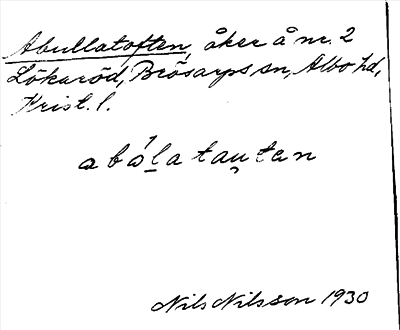 Abullatoften, åker å nr. 2
Lökaröd, Brösarps sn, Albo hd,
Krist. l.
abǻla tau̯tan
Nils Nilsson 1930